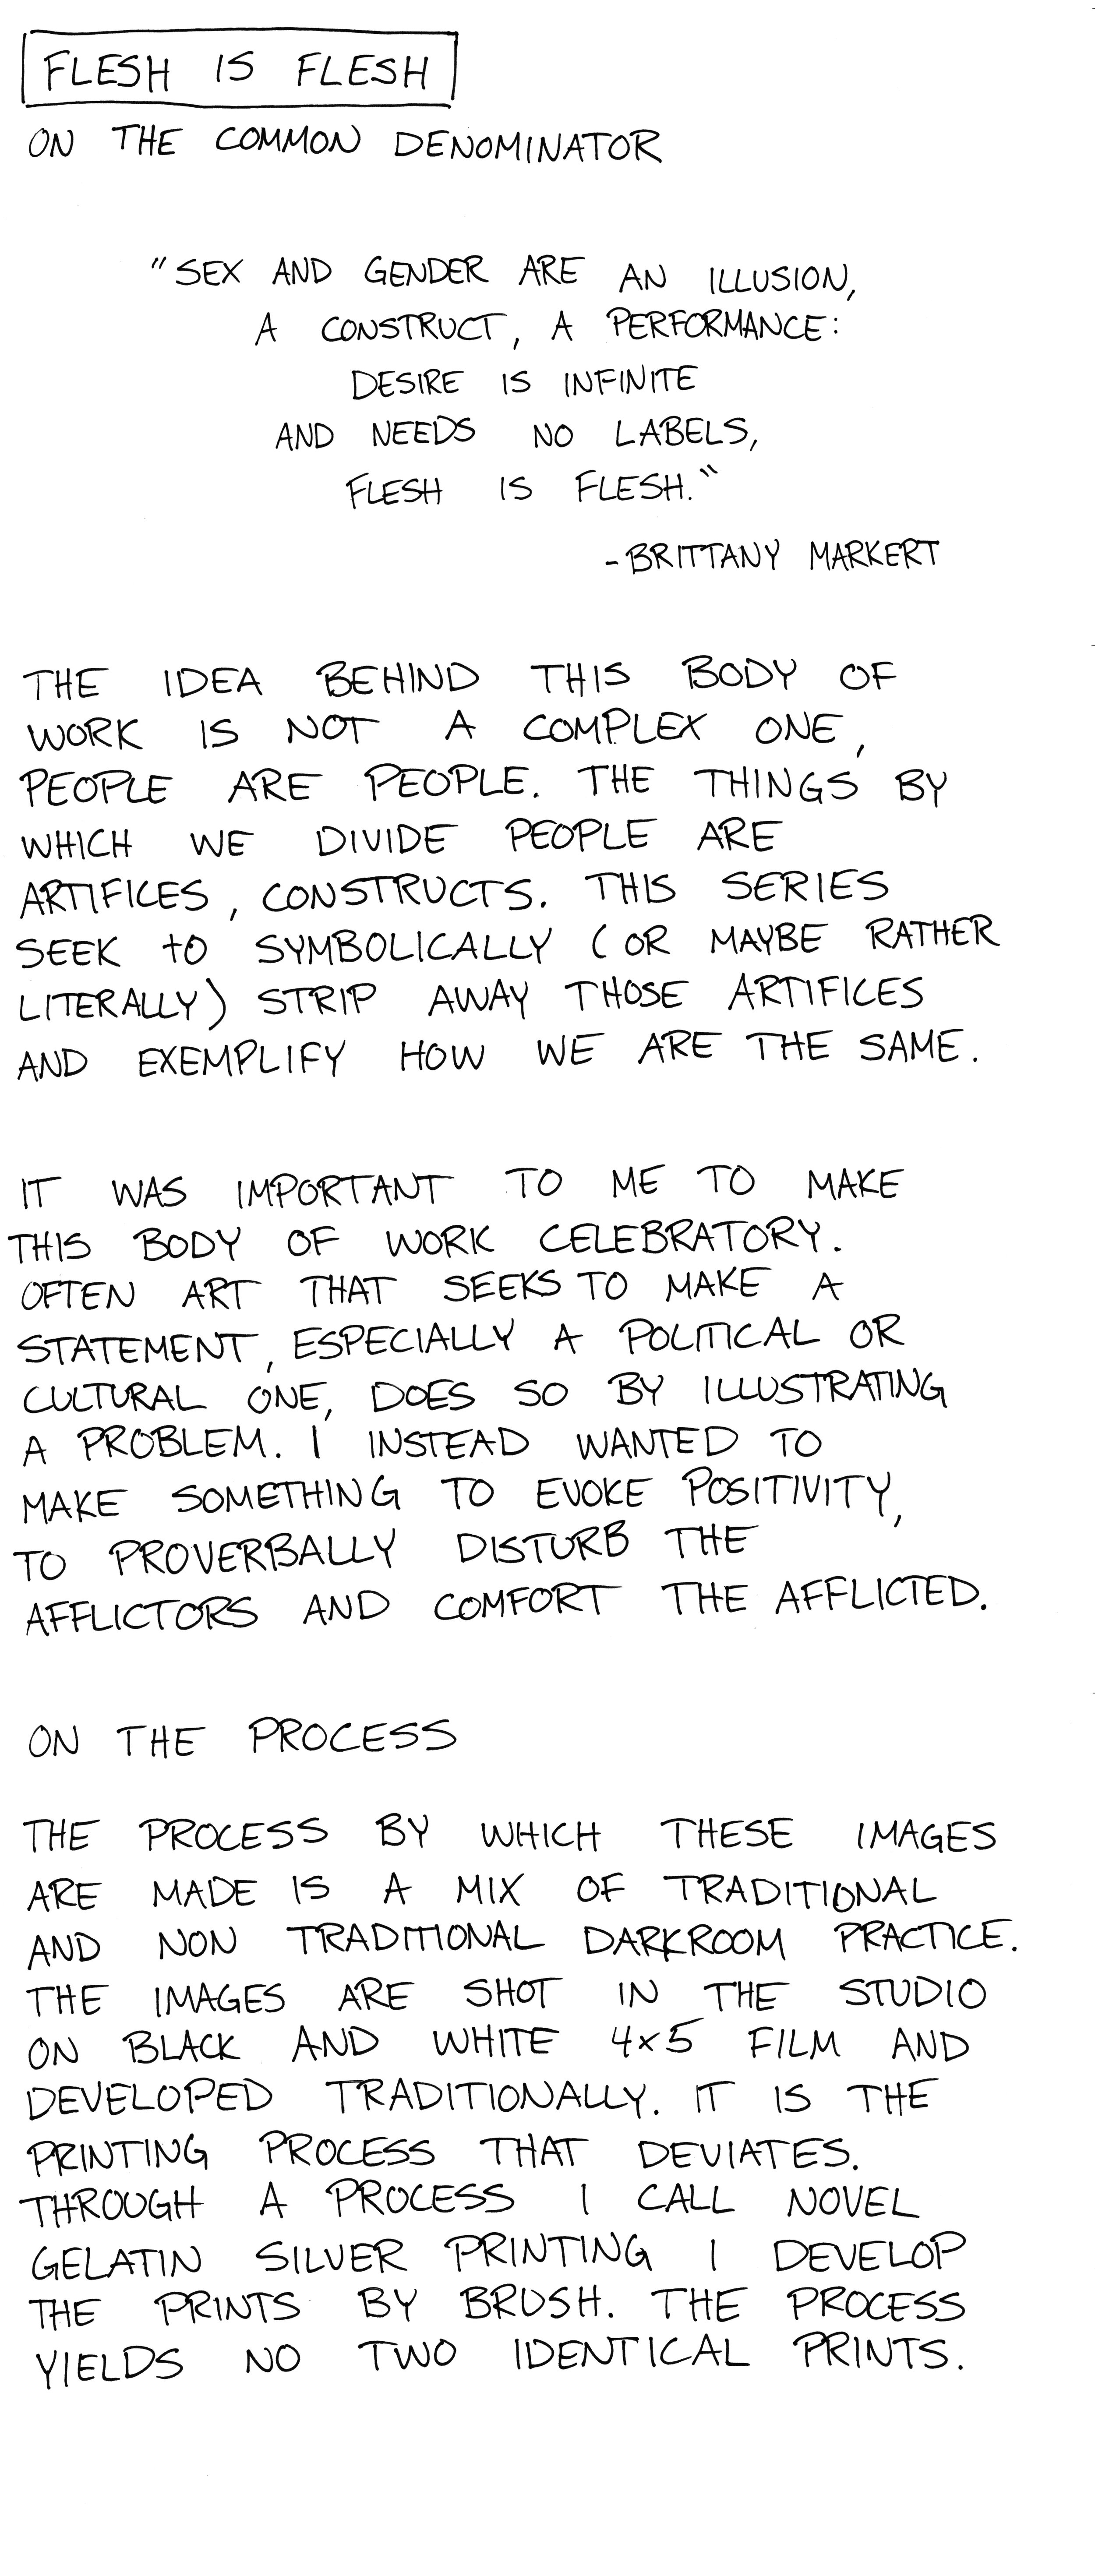 FLESH IS FLESH
ON THE COMMON DENOMINATOR
"SEX AND GENDER ARE AN ILLUSION,
A CONSTRUCT, A PERFORMANCE:
DESIRE IS INFINITE
AND NEEDS NO LABELS,
FLESH IS FLESH."
-BRITTANY MARKERT
THE IDEA BEHIND THIS BODY OF
WORK IS NOT A COMPLEX ONE,
PEOPLE ARE PEOPLE. THE THINGS BY
WHICH WE DIVIDE PEOPLE ARE
ARTIFICES, CONSTRUCTS. THIS SERIES
SEEK TO SYMBOLICALLY (OR MAYBE RATHER
LITERALLY) STRIP AWAY THOSE ARTIFICES
AND EXEMPLIFY HOW WE ARE THE SAME.
IT WAS IMPORTANT TO ME TO MAKE
THIS BODY OF WORK CELEBRATORY.
OFTEN ART THAT SEEKS TO MAKE A
STATEMENT, ESPECIALLY A POLITICAL OR
CULTURAL ONE, DOES SO BY ILLUSTRATING
A PROBLEM. I INSTEAD WANTED TO
MAKE SOMETHING TO EVOKE POSITIVITY,
TO PROVERBALLY DISTURB THE
AFFLICTORS AND COMFORT THE AFFLICTED.
ON THE PROCESS
THE PROCESS BY WHICH THESE IMAGES
ARE MADE IS A MIX OF TRADITIONAL
AND NON TRADITIONAL DARKROOM PRACTICE.
THE IMAGES ARE SHOT IN THE STUDIO
ON BLACK AND WHITE 4x5 FILM AND
DEVELOPED TRADITIONALLY. IT IS THE
PRINTING PROCESS THAT DEVIATES.
THROUGH A PROCESS I CALL NOVEL
GELATIN SILVER PRINTING I DEVELOP
THE PRINTS BY BRUSH. THE PROCESS
YIELDS NO TWO IDENTICAL PRINTS.